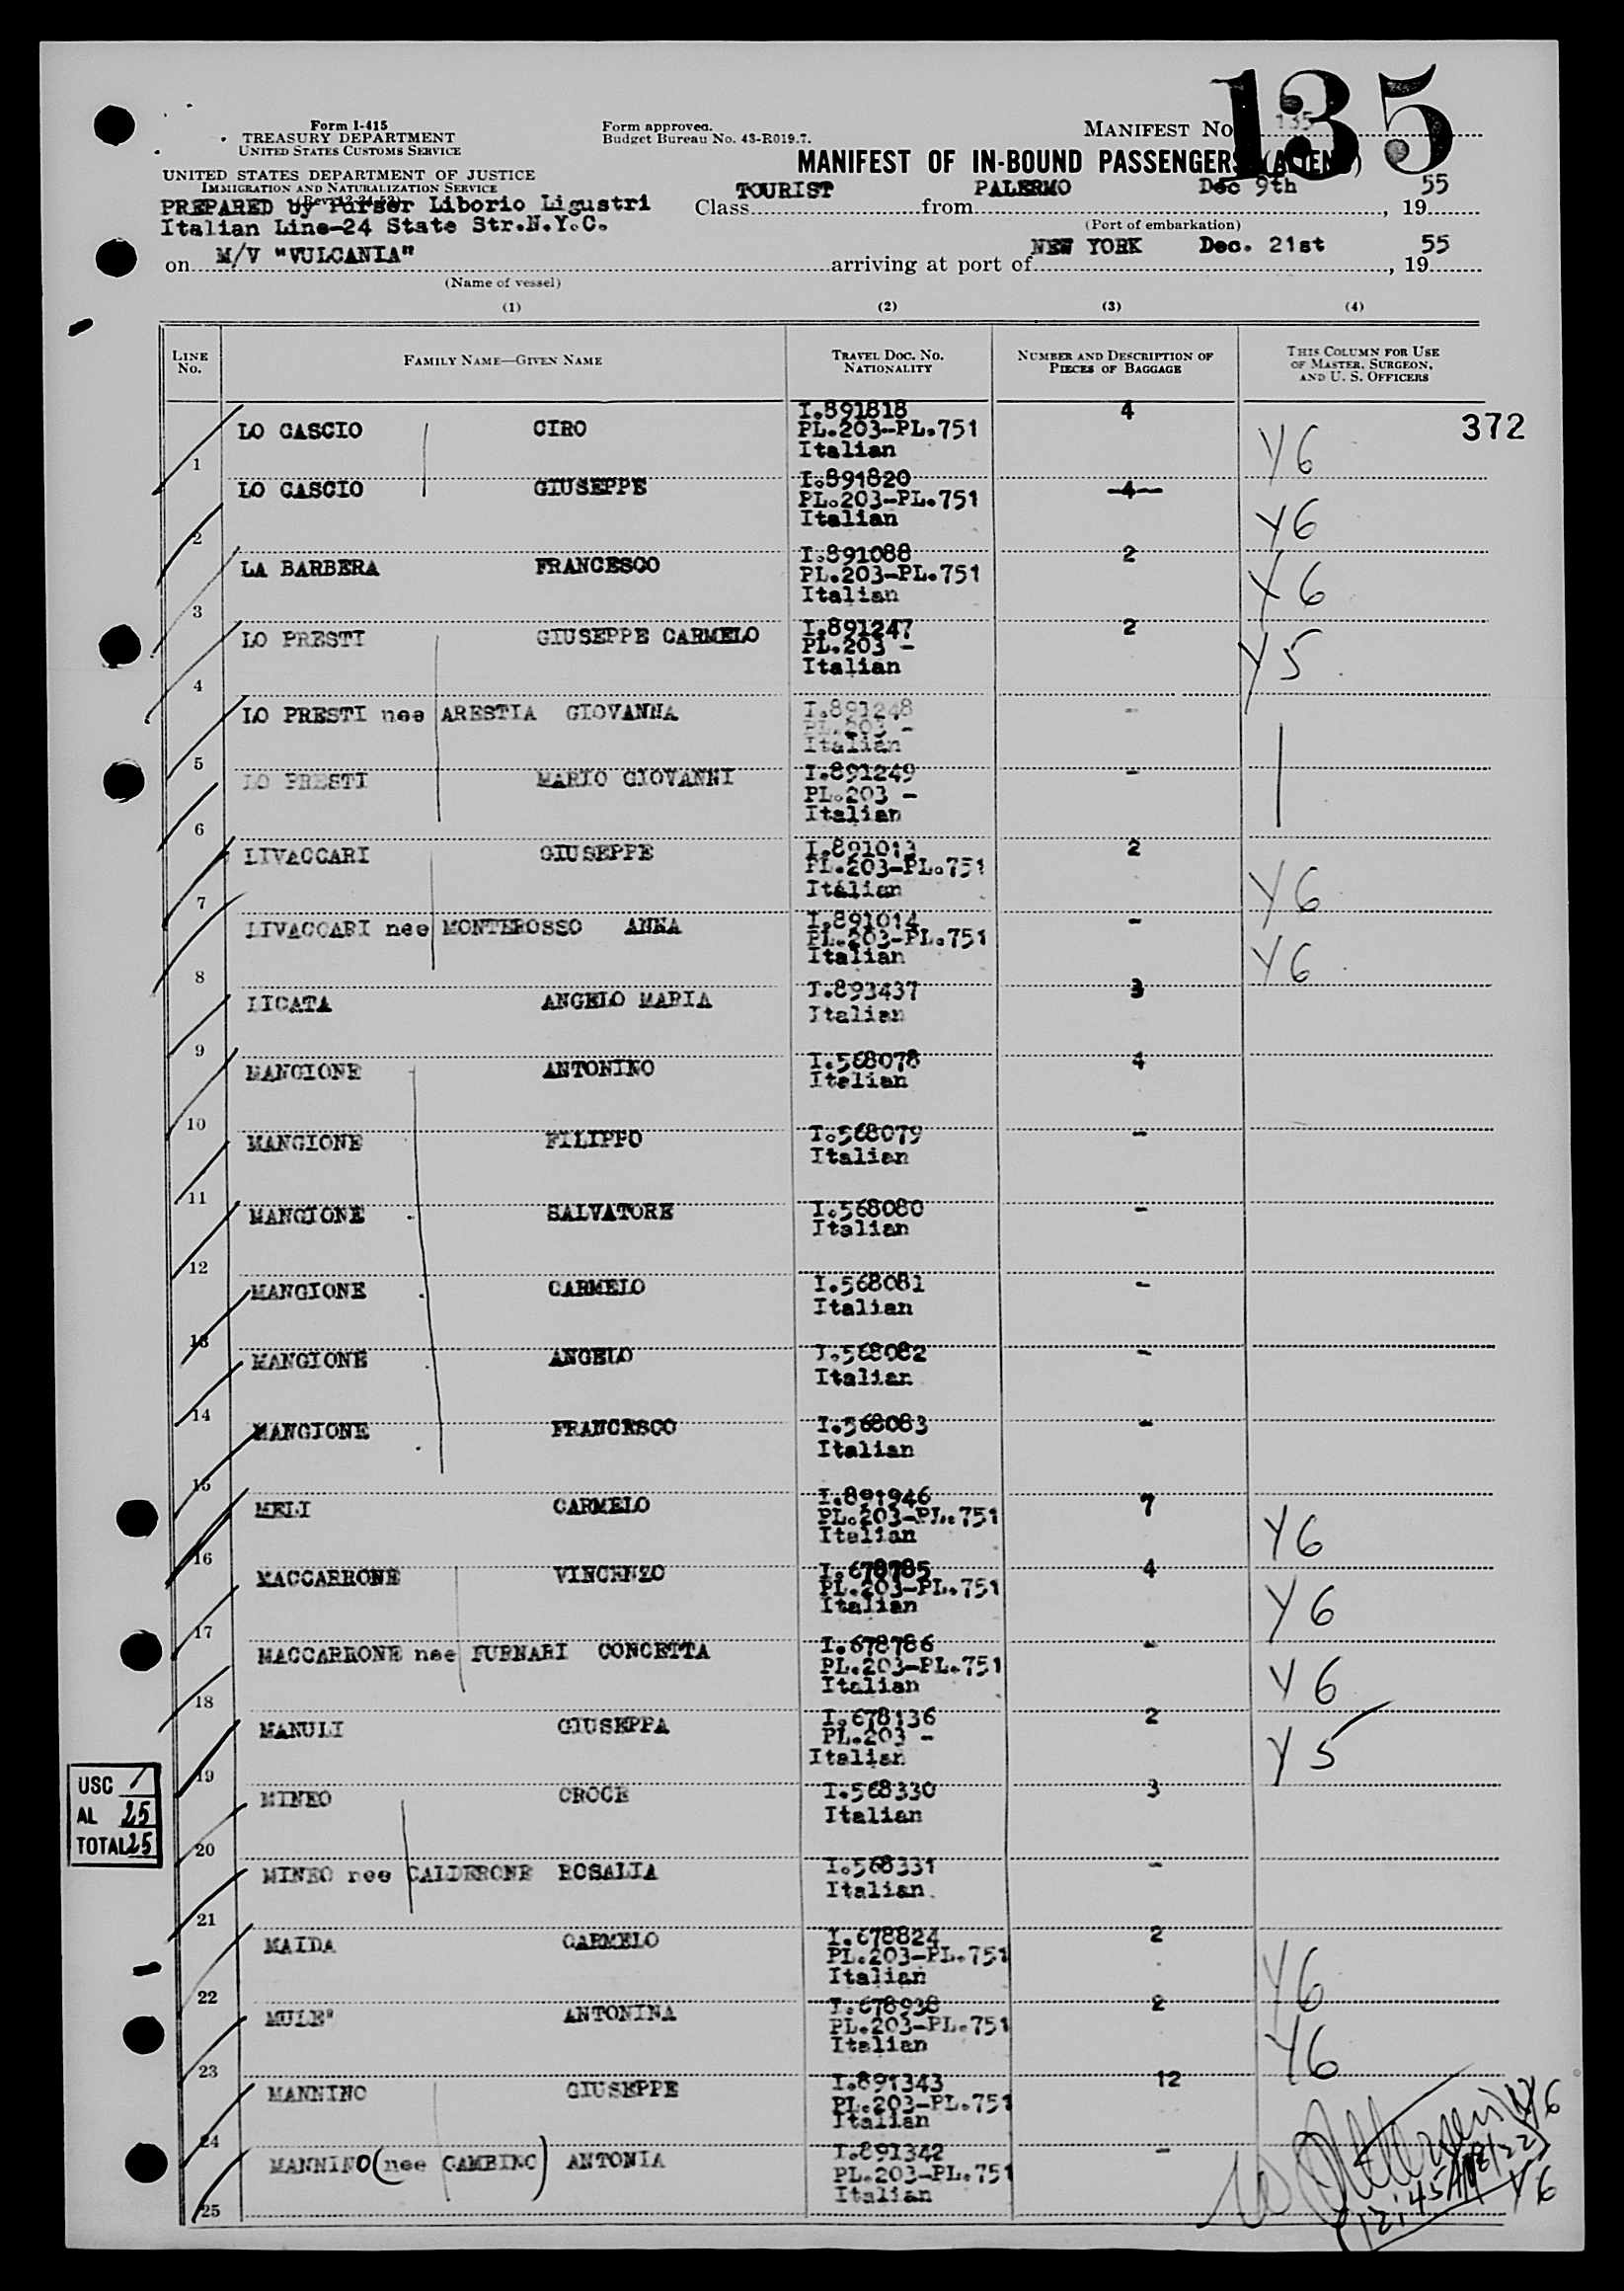 135
Form I-415
TREASURY DEPARTMENT
UNITED STATES CUSTOMS SERVICE
Form approved.
Budget Bureau No. 43-R019.7.
MANIFEST No. 135
UNITED STATES DEPARTMENT OF JUSTICE
IMMIGRATION AND NATURALIZATION SERVICE
MANIFEST OF IN-BOUND PASSENGERS (ALIENS)
PREPARED by Purser Liborio Ligustri
Italian Line-24 State Str.N.Y.C.
Class TOURIST from PALERMO Dec 9th, 1955
(Port of embarkation)
on M/V "VULCANIA" arriving at port of NEW YORK Dec. 21st, 1955
(Name of vessel)
(1) (2) (3) (4)
LINE No. FAMILY NAME—GIVEN NAME TRAVEL DOC. NO. NATIONALITY NUMBER AND DESCRIPTION OF PIECES OF BAGGAGE THIS COLUMN FOR USE OF MASTER, SURGEON, AND U. S. OFFICERS
372
1 LO CASCIO CIRO I.891818 PL.203-PL.751 Italian 4 Y6
2 LO CASCIO GIUSEPPE I.891820 PL.203-PL.751 Italian -4- Y6
3 LA BARBERA FRANCESCO I.891088 PL.203-PL.751 Italian 2 Y6
4 LO PRESTI GIUSEPPE CARMELO I.891247 PL.203 - Italian 2 Y5
5 LO PRESTI nee ARESTIA GIOVANNA I.891248 PL.203 - Italian -
6 LO PRESTI MARIO GIOVANNI I.891249 PL.203 - Italian -
7 LIVACCARI GIUSEPPE I.891013 PL.203-PL.751 Italian 2 Y6
8 LIVACCARI nee MONTEROSSO ANNA I.891014 PL.203-PL.751 Italian - Y6
9 LICATA ANGELO MARIA I.893437 Italian 3
10 MANGIONE ANTONINO I.568078 Italian 4
11 MANGIONE FILIPPO I.568079 Italian -
12 MANGIONE SALVATORE I.568080 Italian -
13 MANGIONE CARMELO I.568081 Italian -
14 MANGIONE ANGELO I.568082 Italian -
15 MANGIONE FRANCESCO I.568083 Italian -
16 MELI CARMELO I.891946 PL.203-PL.751 Italian 7 Y6
17 MACCARRONE VINCENZO I.678785 PL.203-PL.751 Italian 4 Y6
18 MACCARRONE nee FURNARI CONCETTA I.678786 PL.203-PL.751 Italian - Y6
19 MANULI GIUSEPPA I.678136 PL.203 - Italian 2 Y5
USC /
AL 25
TOTAL 25
20 MINEO CROCE I.568330 Italian 3
21 MINEO nee CALDERONE ROSALIA I.568331 Italian -
22 MAIDA CARMELO I.678824 PL.203-PL.751 Italian 2 Y6
23 MULE" ANTONINA I.678938 PL.203-PL.751 Italian 2 Y6
24 MANNINO GIUSEPPE I.891343 PL.203-PL.751 Italian 12 Y6
25 MANNINO (nee GAMBINO) ANTONIA I.891342 PL.203-PL.751 Italian - Y6
12:45 AM